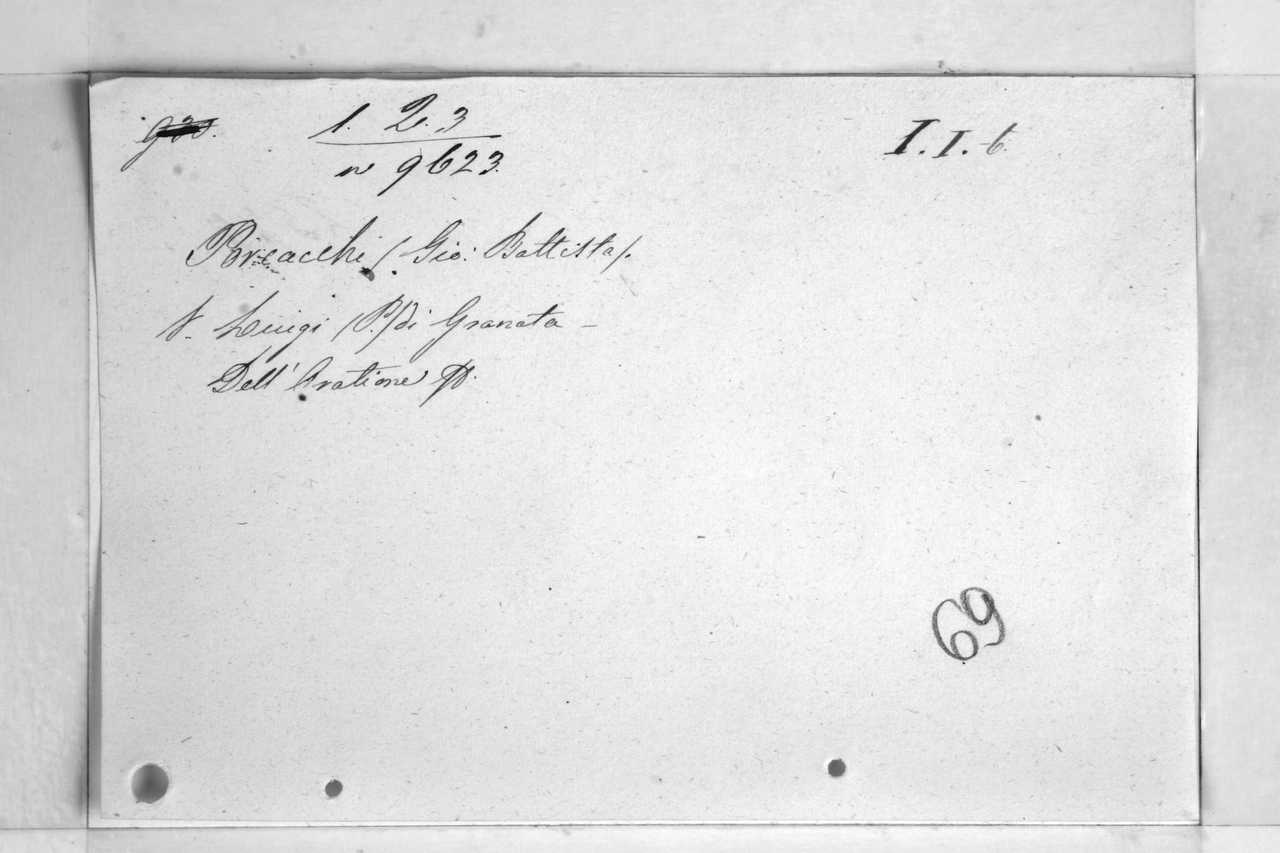 1. 2. 3
n 9623.
I. I. 6.
Porcacchi (Gio: Battista).
V. Luigi (P.) di Granata –
Dell' Oratione
69